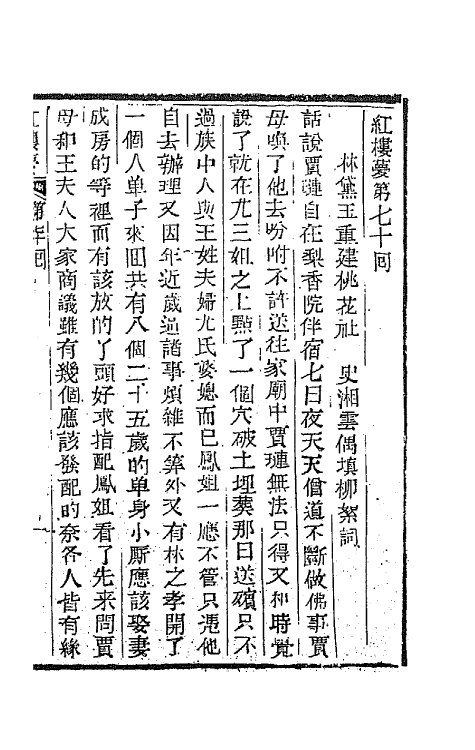 紅樓夢第七十回
林黛玉重建桃花社　史湘雲偶填柳絮詞
話說賈璉自在梨香院伴宿七日夜天天僧道不斷做佛事賈
母喚了他去吩咐不許送往家廟中賈璉無法只得又和時覺
說了就在尤三姐之上點了一個穴破土埋葬那日送殯只不
過族中人與王姓夫婦尤氏婆媳而已鳳姐一應不管只凴他
自去辦理又因年近歲逼諸事煩雜不算外又有林之孝開了
一個人單子來囬共有八個二十五歲的單身小厮應該娶妻
成房的等裡面有該放的丫頭好求指配鳳姐看了先来問賈
母和王夫人大家商議雖有幾個應該發配的奈各人皆有緣
紅樓夢　第七十囬